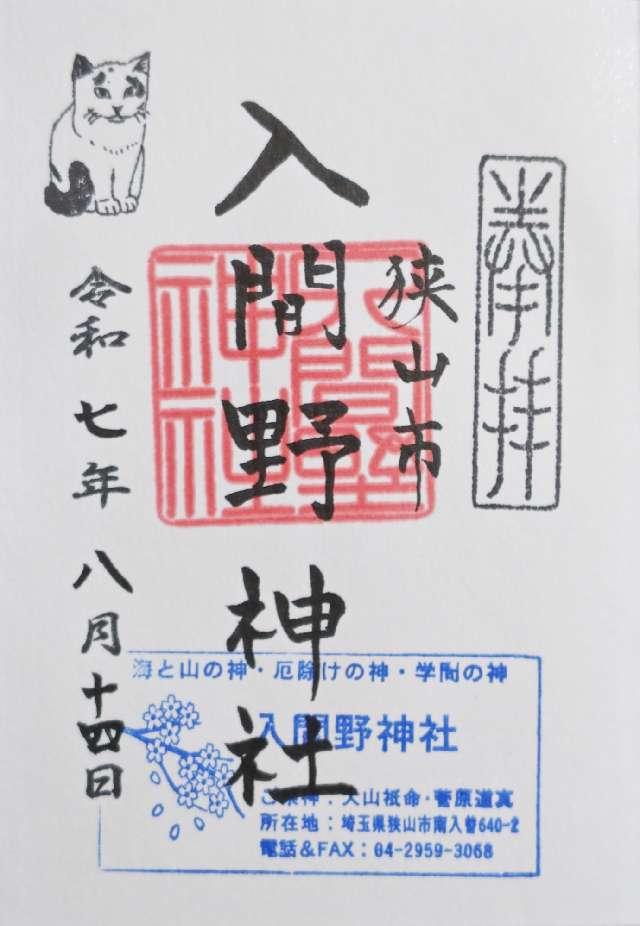 奉拝
狭山市
入間野神社
入間野神社
令和七年八月十四日
海と山の神・厄除けの神・学問の神
入間野神社
ご祭神:大山祇命・菅原道真
所在地:埼玉県狭山市南入曽640-2
電話&FAX:04-2959-3068